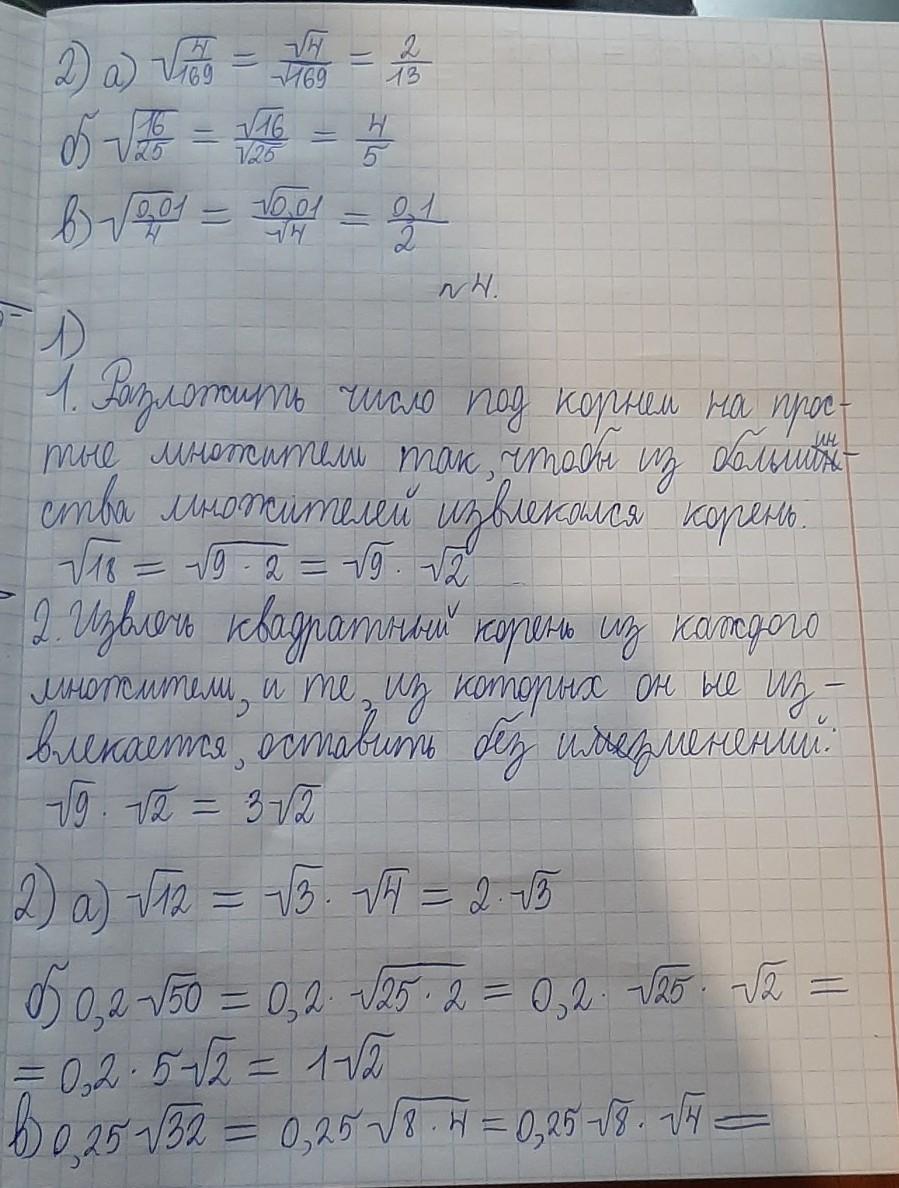 2) а) √4/169 = √4/√169 = 2/13
б) √16/25 = √16/√25 = 4/5
в) √0,01/4 = √0,01/√4 = 0,1/2
№4.
1)
1. Разложить число под корнем на прос-
тые множители так, чтобы из большин-
ства множителей извлекался корень.
√18 = √9·2 = √9 · √2
2. Извлечь квадратный корень из каждого
множители, и те, из которых он не из-
влекается, оставить без изменений:
√9 · √2 = 3√2
2) а) √12 = √3 · √4 = 2·√3
б) 0,2√50 = 0,2 · √25·2 = 0,2 · √25 · √2 =
= 0,2 · 5√2 = 1√2
в) 0,25√32 = 0,25√8·4 = 0,25√8 · √4 =